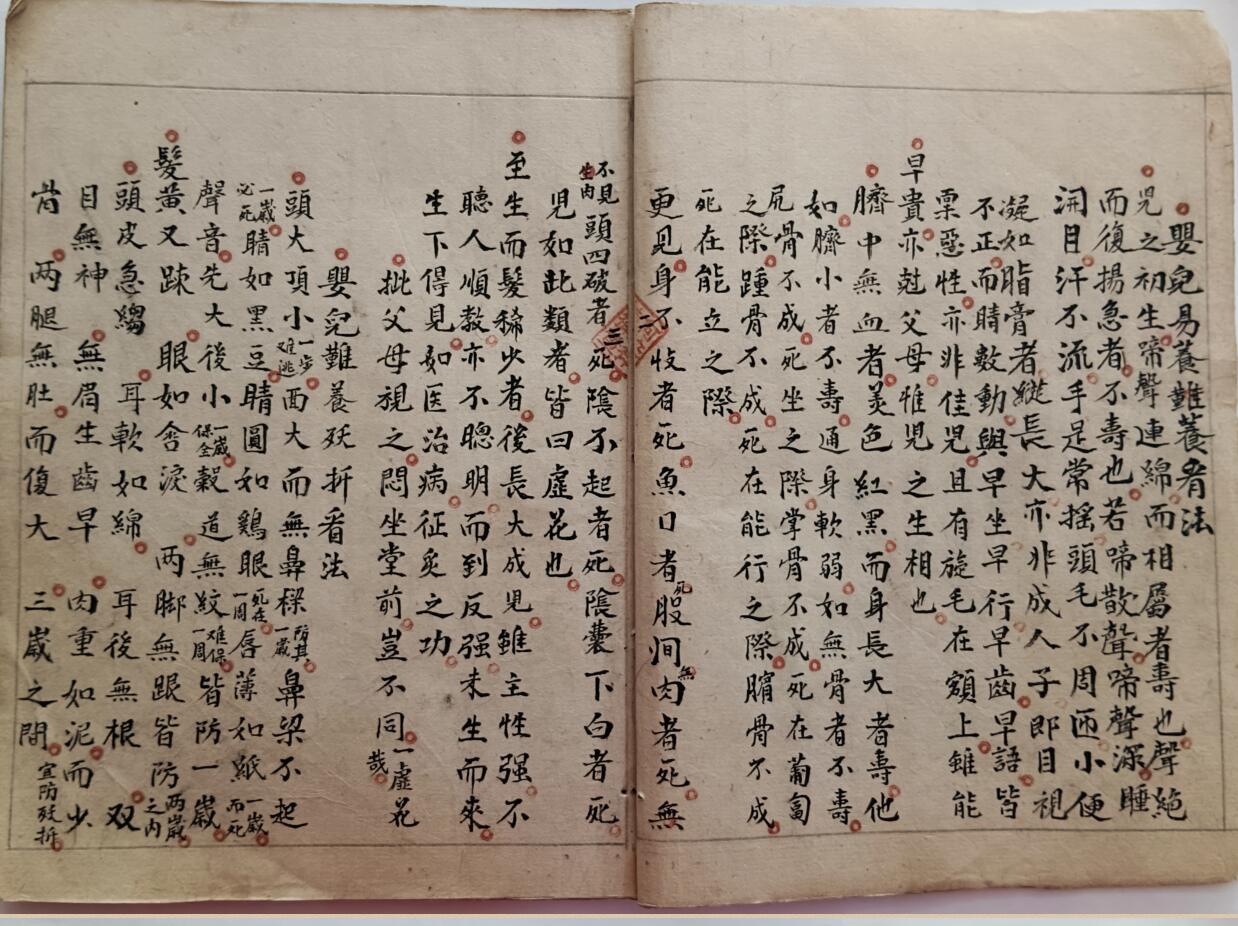 嬰兒易養難養看法
児之初生啼聲連綿而相屬者壽也聲絶
而復揚急者不壽也若啼散聲啼聲深睡
開目汗不流手足常搖頭毛不周匝小便
凝如脂膏者縱長大亦非成人子即目視
不正而睛數動與早坐早行早齒早語皆
稟惡性亦非佳児且有旋毛在額上雖能
早貴亦尅父母惟児之生相也
臍中無血者美色紅黑而身長大者壽他
如臍小者不壽通身軟弱如無骨者不壽
尻骨不成死坐之際掌骨不成死在葡匐
之際踵骨不成死在能行之際臏骨不成
死在能立之際
更見身不收者死魚口者死股间無肉者死無
二
三
不見生肉頭四破者死陰不起者死陰囊下白者死
児如此類者皆曰虛花也
至生而髮稀少者後長大成児雖主性强不
聽人順教亦不聰明而到反强未生而來
生下得見如医治病征炙之功
批父母視之悶坐堂前豈不同一虛花哉
嬰兒難養殀折看法
頭大項小一步难逃面大而無鼻樑防其一歲鼻梁不起
一歲必死睛如黑豆睛圓如鷄眼死在一周唇薄如紙一歲而死
聲音先大後小一歲保全穀道無紋难保一周皆防一歲
髮黃又疎 眼如含淚 两脚無跟皆防两歲之内
頭皮急縐 耳軟如綿 耳後無根 双
目無神 無眉生齒早 肉重如泥而少
骨 两腿無肚而復大 三歲之間宜防殀折